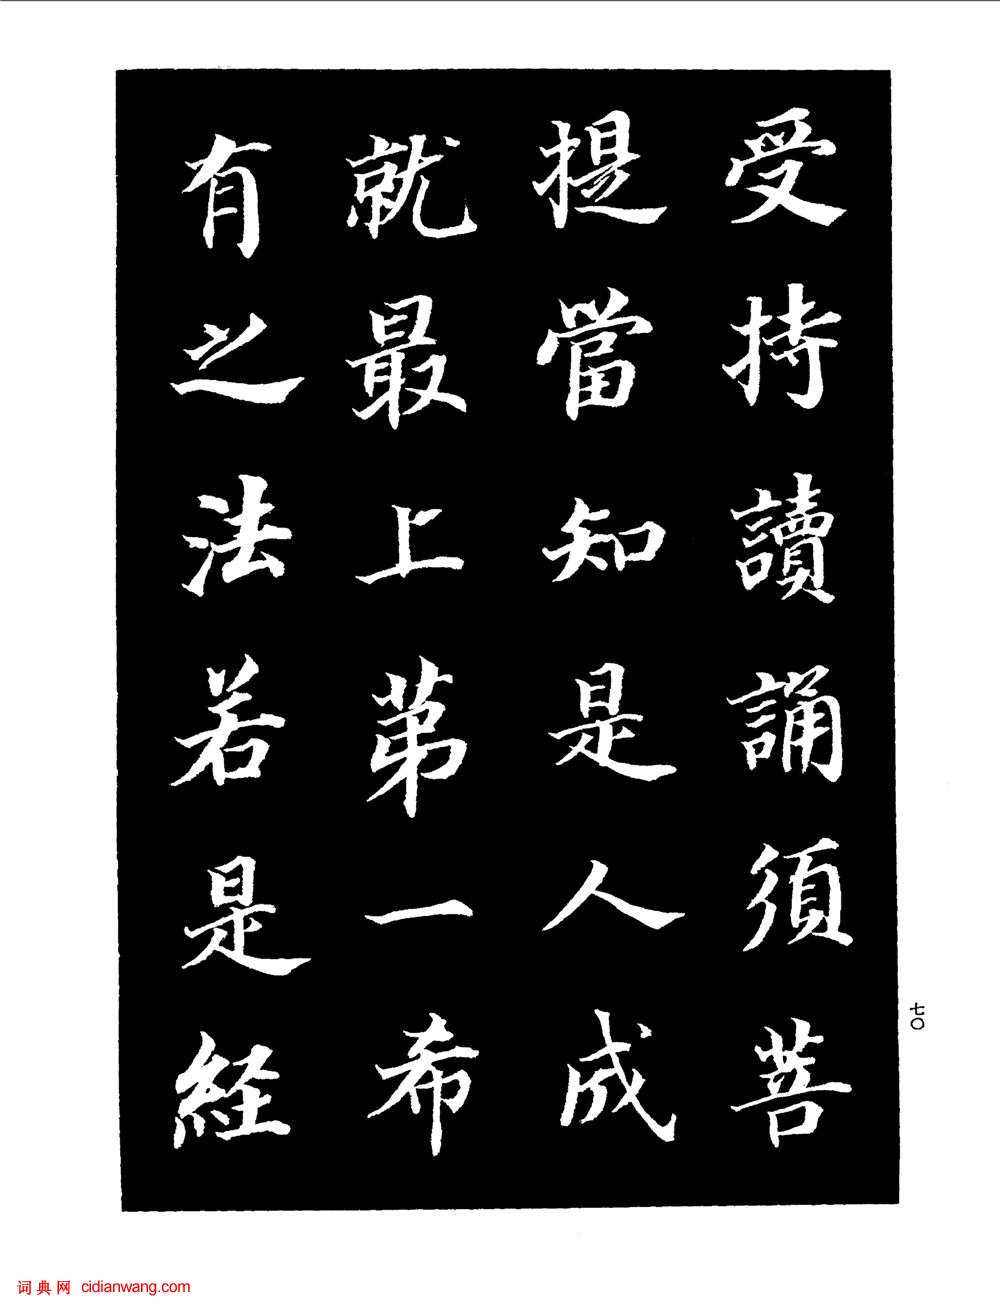 受持讀誦須菩
提當知是人成
就最上苐一希
有之法若是経
七〇
词典网 cidianwang.com